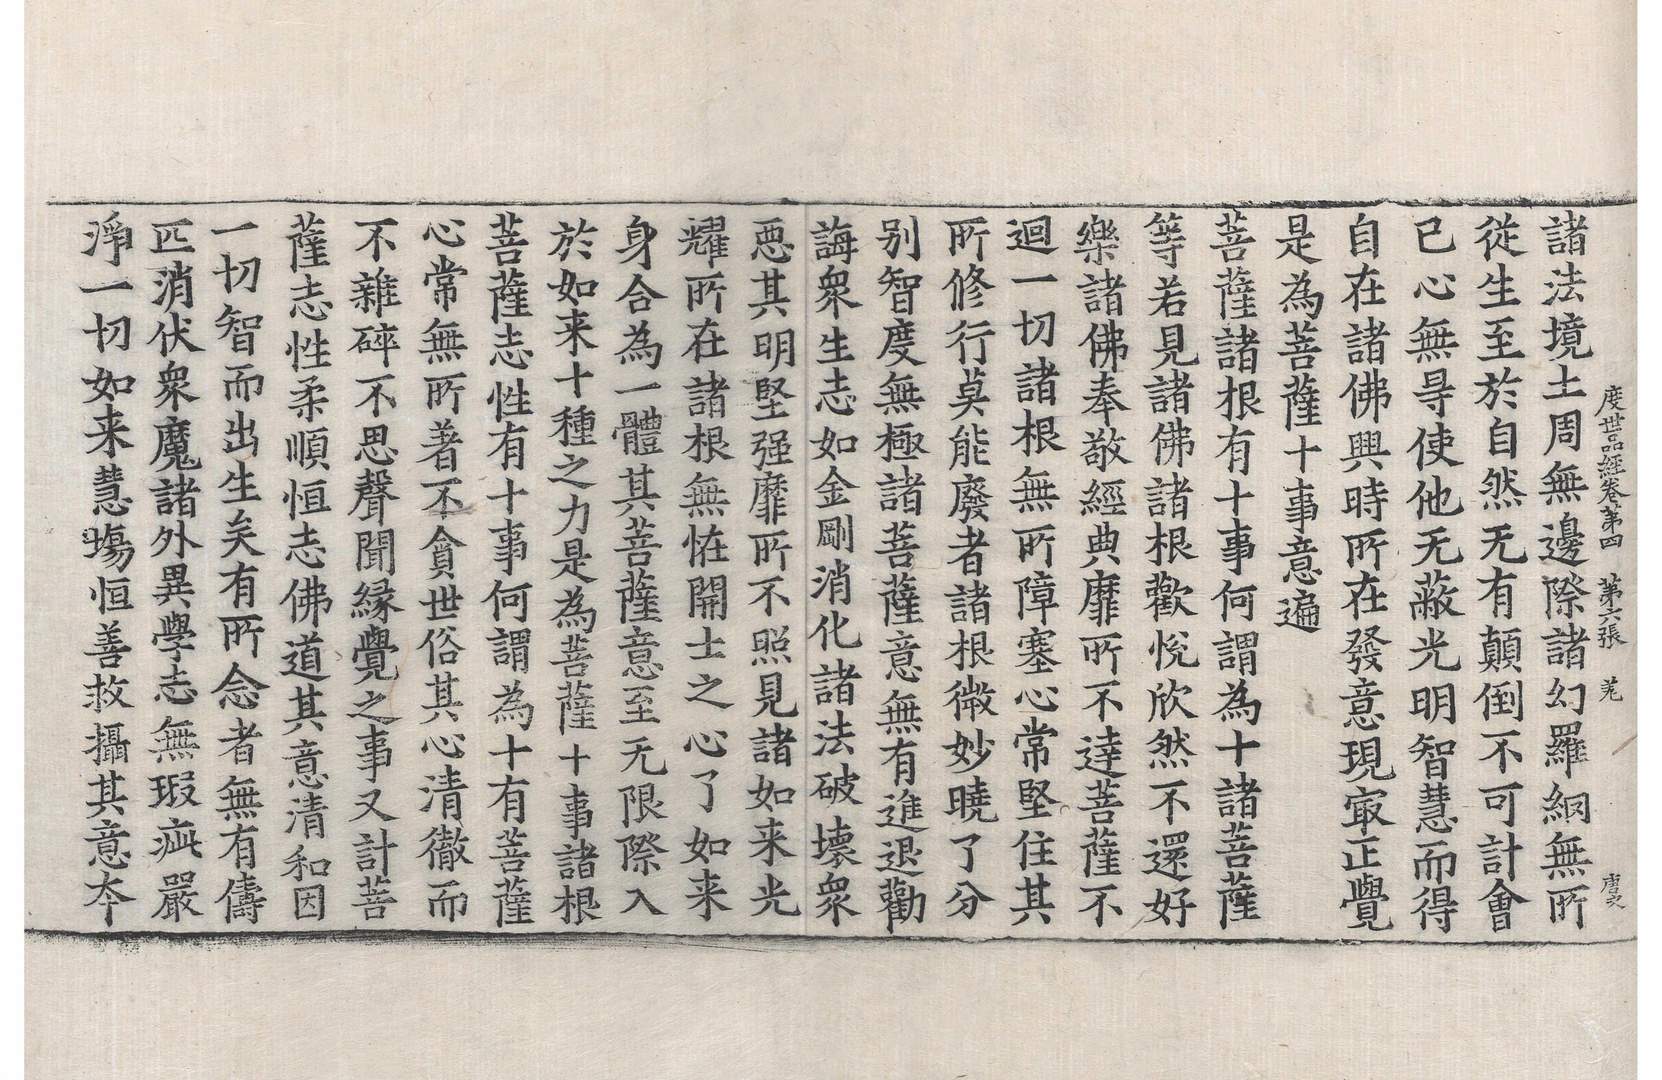 度世品經卷第四　第六張　羌
諸法境土周無邊際諸幻羅網無所
從生至於自然无有顛倒不可計會
已心無㝵使他无蔽光明智慧而得
自在諸佛興時所在發意現㝡正覺
是為菩薩十事意遍
菩薩諸根有十事何謂為十諸菩薩
等若見諸佛諸根歡悅欣然不還好
樂諸佛奉敬經典靡所不達菩薩不
迴一切諸根無所障塞心常堅住其
所修行莫能廢者諸根微妙曉了分
别智度無極諸菩薩意無有進退勸
誨衆生志如金剛消化諸法破壞衆
惡其明堅强靡所不照見諸如来光
耀所在諸根無恠開士之心了如来
身合為一體其菩薩意至无限際入
於如来十種之力是為菩薩十事諸根
菩薩志性有十事何謂為十有菩薩
心常無所著不貪世俗其心清徹而
不雜碎不思聲聞緣覺之事又計菩
薩志性柔順恒志佛道其意清和因
一切智而出生矣有所念者無有儔
匹消伏衆魔諸外異學志無瑕疵嚴
淨一切如来慧塲恒善救攝其意夲